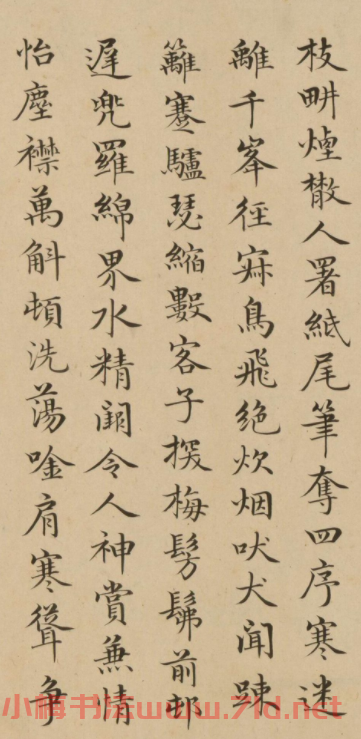 枝畊煙散人署紙尾筆奪四序寒迷
離千峯徑寂鳥飛絶炊烟吠犬聞踈
籬蹇驢瑟縮數客子探梅髣髴前邨
遅兜羅綿界水精闕令人神賞兼情
怡塵襟萬斛頓洗蕩唫肩寒聳争
小梅书法www.71d.net